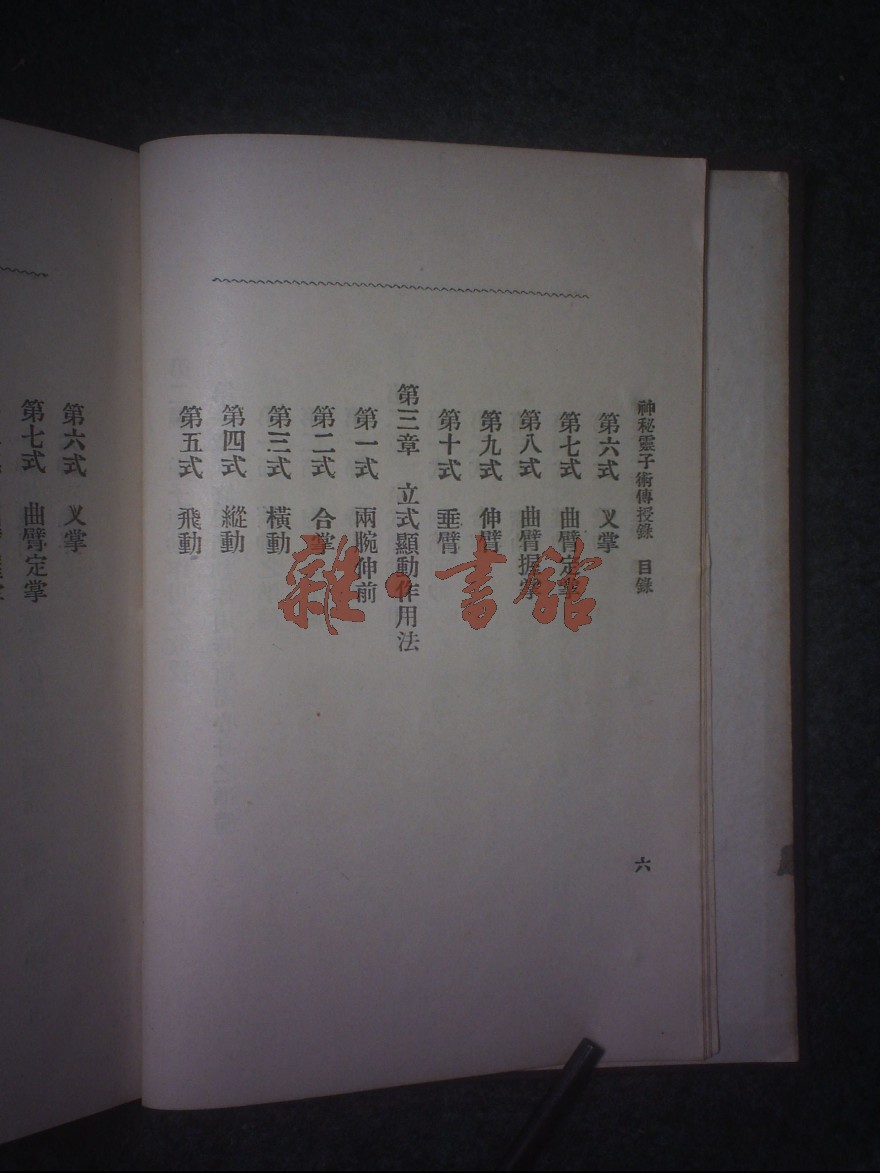 神秘靈子術傳授錄　目錄
第六式　叉掌
第七式　曲臂定掌
第八式　曲臂握掌
第九式　伸臂
第十式　垂臂
第三章　立式顯動作用法
第一式　兩腕伸前
第二式　合掌
第三式　橫動
第四式　縱動
第五式　飛動
六
雜·書館
第六式　叉掌
第七式　曲臂定掌